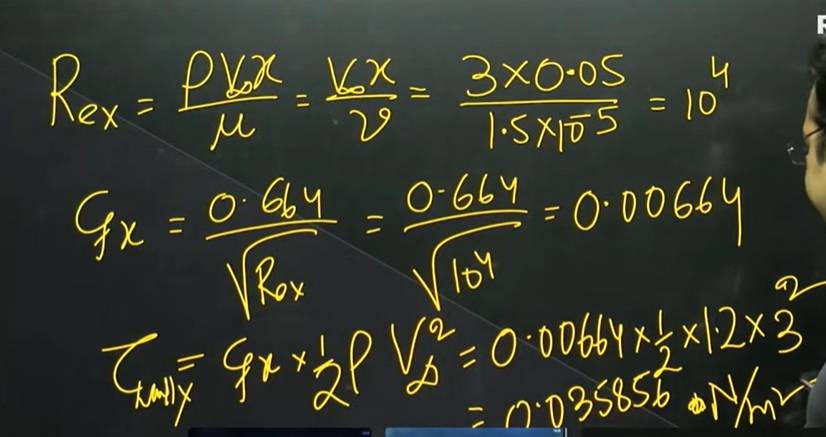 Rex = ρV∞x/μ = V∞x/ν = 3×0.05/1.5×10^-5 = 10^4
Cfx = 0.664/√Rex = 0.664/√10^4 = 0.00664
τwallx = Cfx × 1/2 ρ V∞^2 = 0.00664 × 1/2 × 1.2 × 3^2
= 0.035856 N/m^2